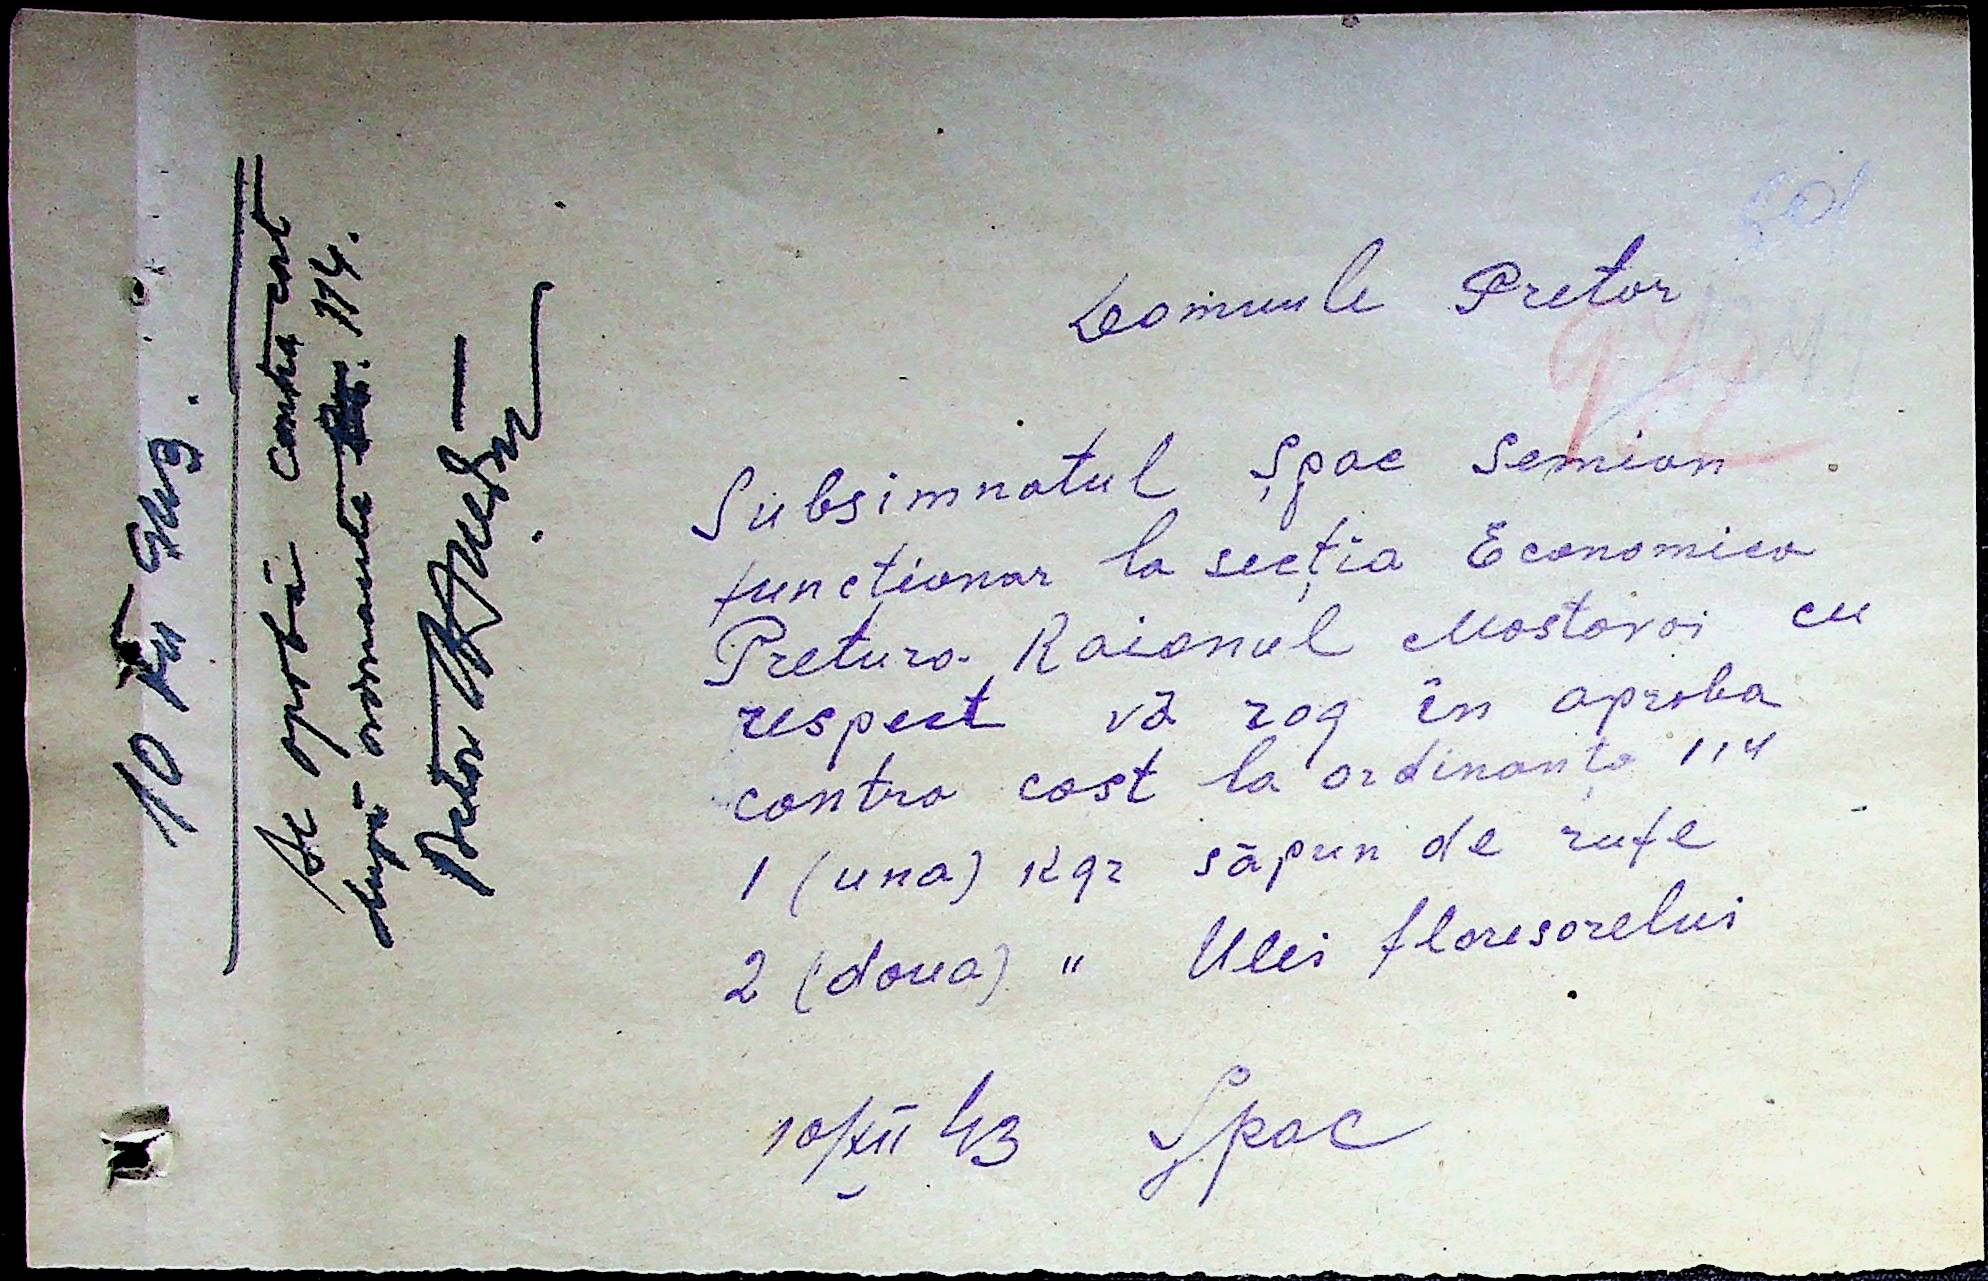 Domnule Pretor
Subsimnatul Șpac Semion
funcționar la secția Economica
Pretura Raionul Mostovoi cu
respect vă rog în aproba
contra cost la ordinanța 114
1 (una) Kgr săpun de rufe
2 (doua) " Ulei floresorelui
10/XII 43 Șpac
10 XII 943.
Se aprobă contra cost
după ordonanta 114.
Pretor